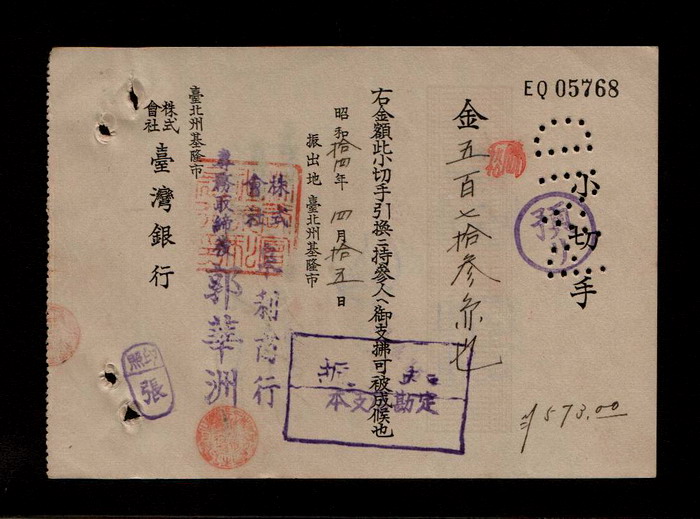 EQ 05768
小切手
預
金五百七拾参円也
¥573.00
右金額此小切手引換ニ持參人ヘ御支拂可被成候也
昭和拾四年四月拾五日
振出地 臺北州基隆市
本支 勘定
株式會社 利商行
專務取締役 郭華洲
臺北州基隆市
株式會社 臺灣銀行
照
張